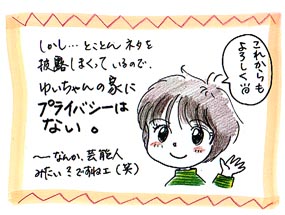 しかし…とことんネタを
披露しまくっているので、
ゆいちゃんの家に
プライバシーは
ない。
〜なんか、芸能人
みたいですねェ(笑)
これからも
よろしく